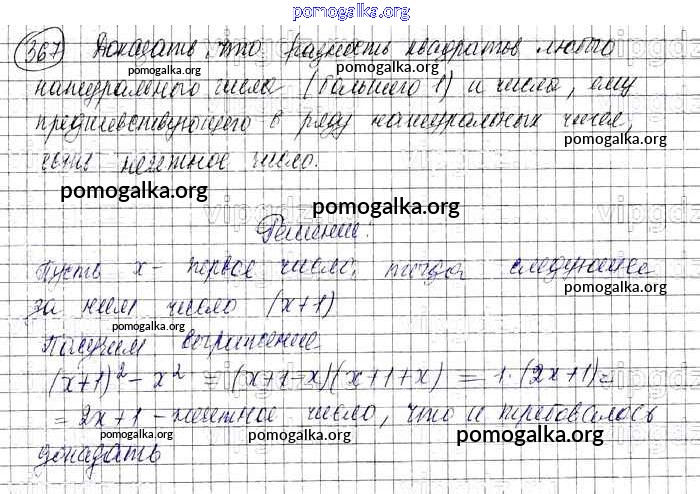 pomogalka.org
367 Доказать, что разность квадратов любого
натурального числа (большего 1) и числа, ему
предшествующего в ряду натуральных чисел,
есть нечетное число.
pomogalka.org
Решение:
Пусть x - первое число, тогда следующее
за ним число (x+1)
pomogalka.org
Получим выражение
(x+1)² - x² = (x+1-x)(x+1+x) = 1·(2x+1)=
= 2x+1 - нечетное число, что и требовалось
pomogalka.org pomogalka.org pomogalka.org
доказать